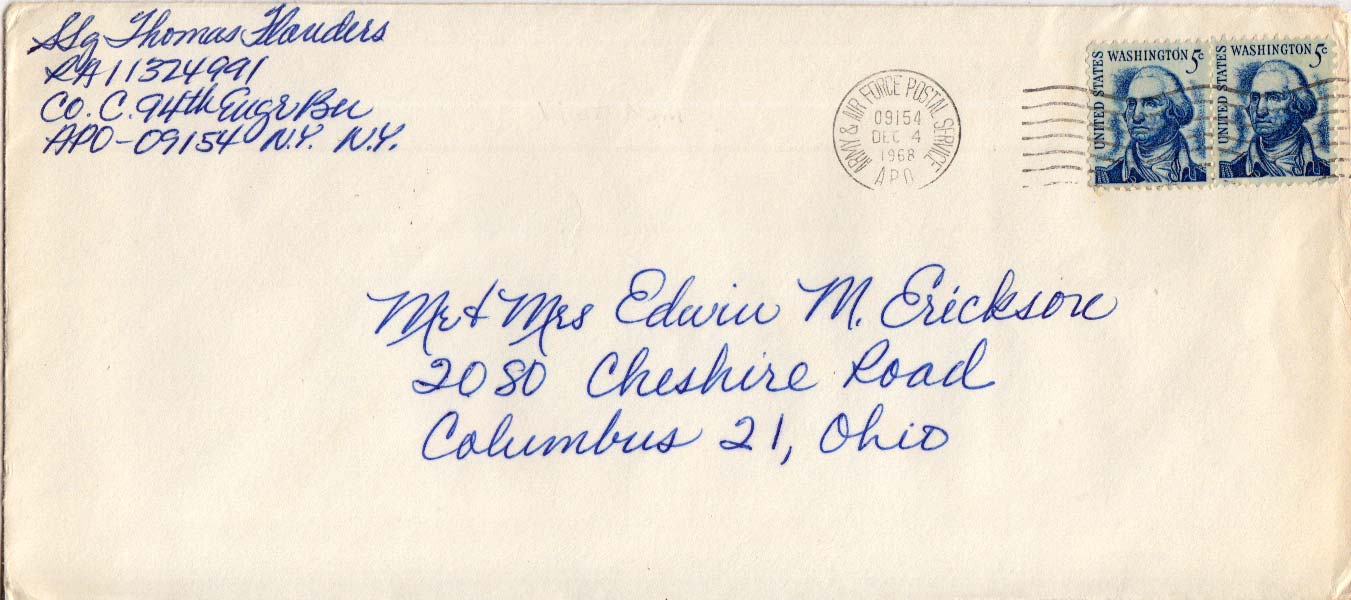 SSg Thomas Flanders
RA11324991
Co. C. 94th Engr Bn
APO-09154 N.Y. N.Y.
ARMY & AIR FORCE POSTAL SERVICE
09154
DEC 4
1968
APO
UNITED STATES WASHINGTON 5c
UNITED STATES WASHINGTON 5c
Mr & Mrs Edwin M. Erickson
2080 Cheshire Road
Columbus 21, Ohio